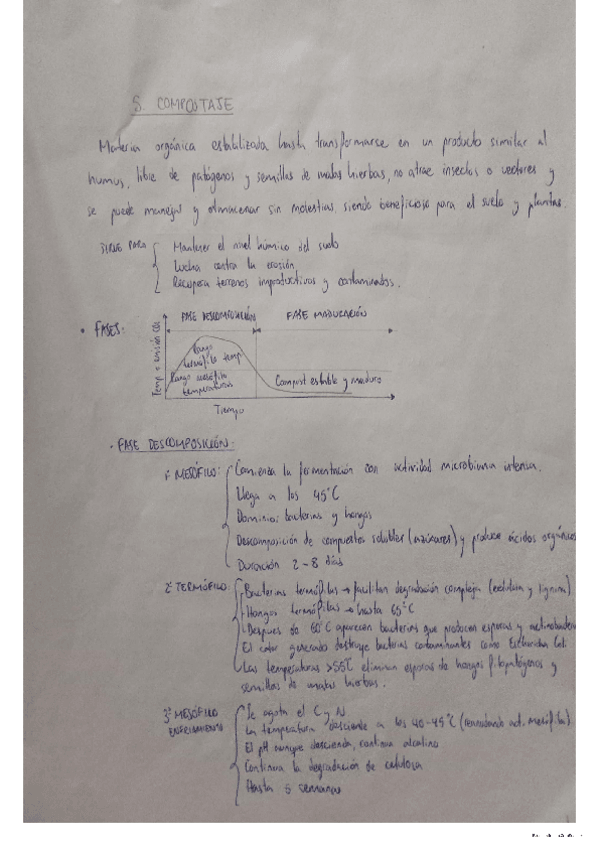 5. COMPOSTAJE
Materia orgánica estabilizada hasta transformarse en un producto similar al
humus, libre de patógenos y semillas de malas hierbas, no atrae insectos o vectores y
se puede manejar y almacenar sin molestias, siendo beneficioso para el suelo y plantas.
SIRVE PARA
Mantener el nivel húmico del suelo
Lucha contra la erosión
Recupera terrenos improductivos y contaminados.
• FASES:
FASE DESCOMPOSICIÓN
FASE MADURACIÓN
Temp o emisión CO2
Rango termófilo temp
Rango mesófilo temperaturas
Compost estable y maduro
Tiempo
• FASE DESCOMPOSICIÓN:
1º MESÓFILO:
Comienza la fermentación con actividad microbiana intensa.
Llega a los 45ºC
Dominio: bacterias y hongos
Descomposición de compuestos solubles (azúcares) y produce ácidos orgánicos
Duración 2-8 días
2º TERMÓFILO:
Bacterias termófilas → facilitan degradación compleja (celulosa y lignina)
Hongos termófilos → hasta 60ºC
Despues de 60ºC aparecen bacterias que producen esporas y actinobacterias
El calor generado destruye bacterias contaminantes como Escherichia Coli.
Las temperaturas >55ºC eliminan esporas de hongos fitopatógenos y
semillas de malas hierbas.
3º MESÓFILO ENFRIAMIENTO
Se agota el C y N
La temperatura desciende a los 40-45ºC (reanudando act. mesófila).
El pH aunque descienda, continua alcalino
Continua la degradación de celulosa
Hasta 5 semanas